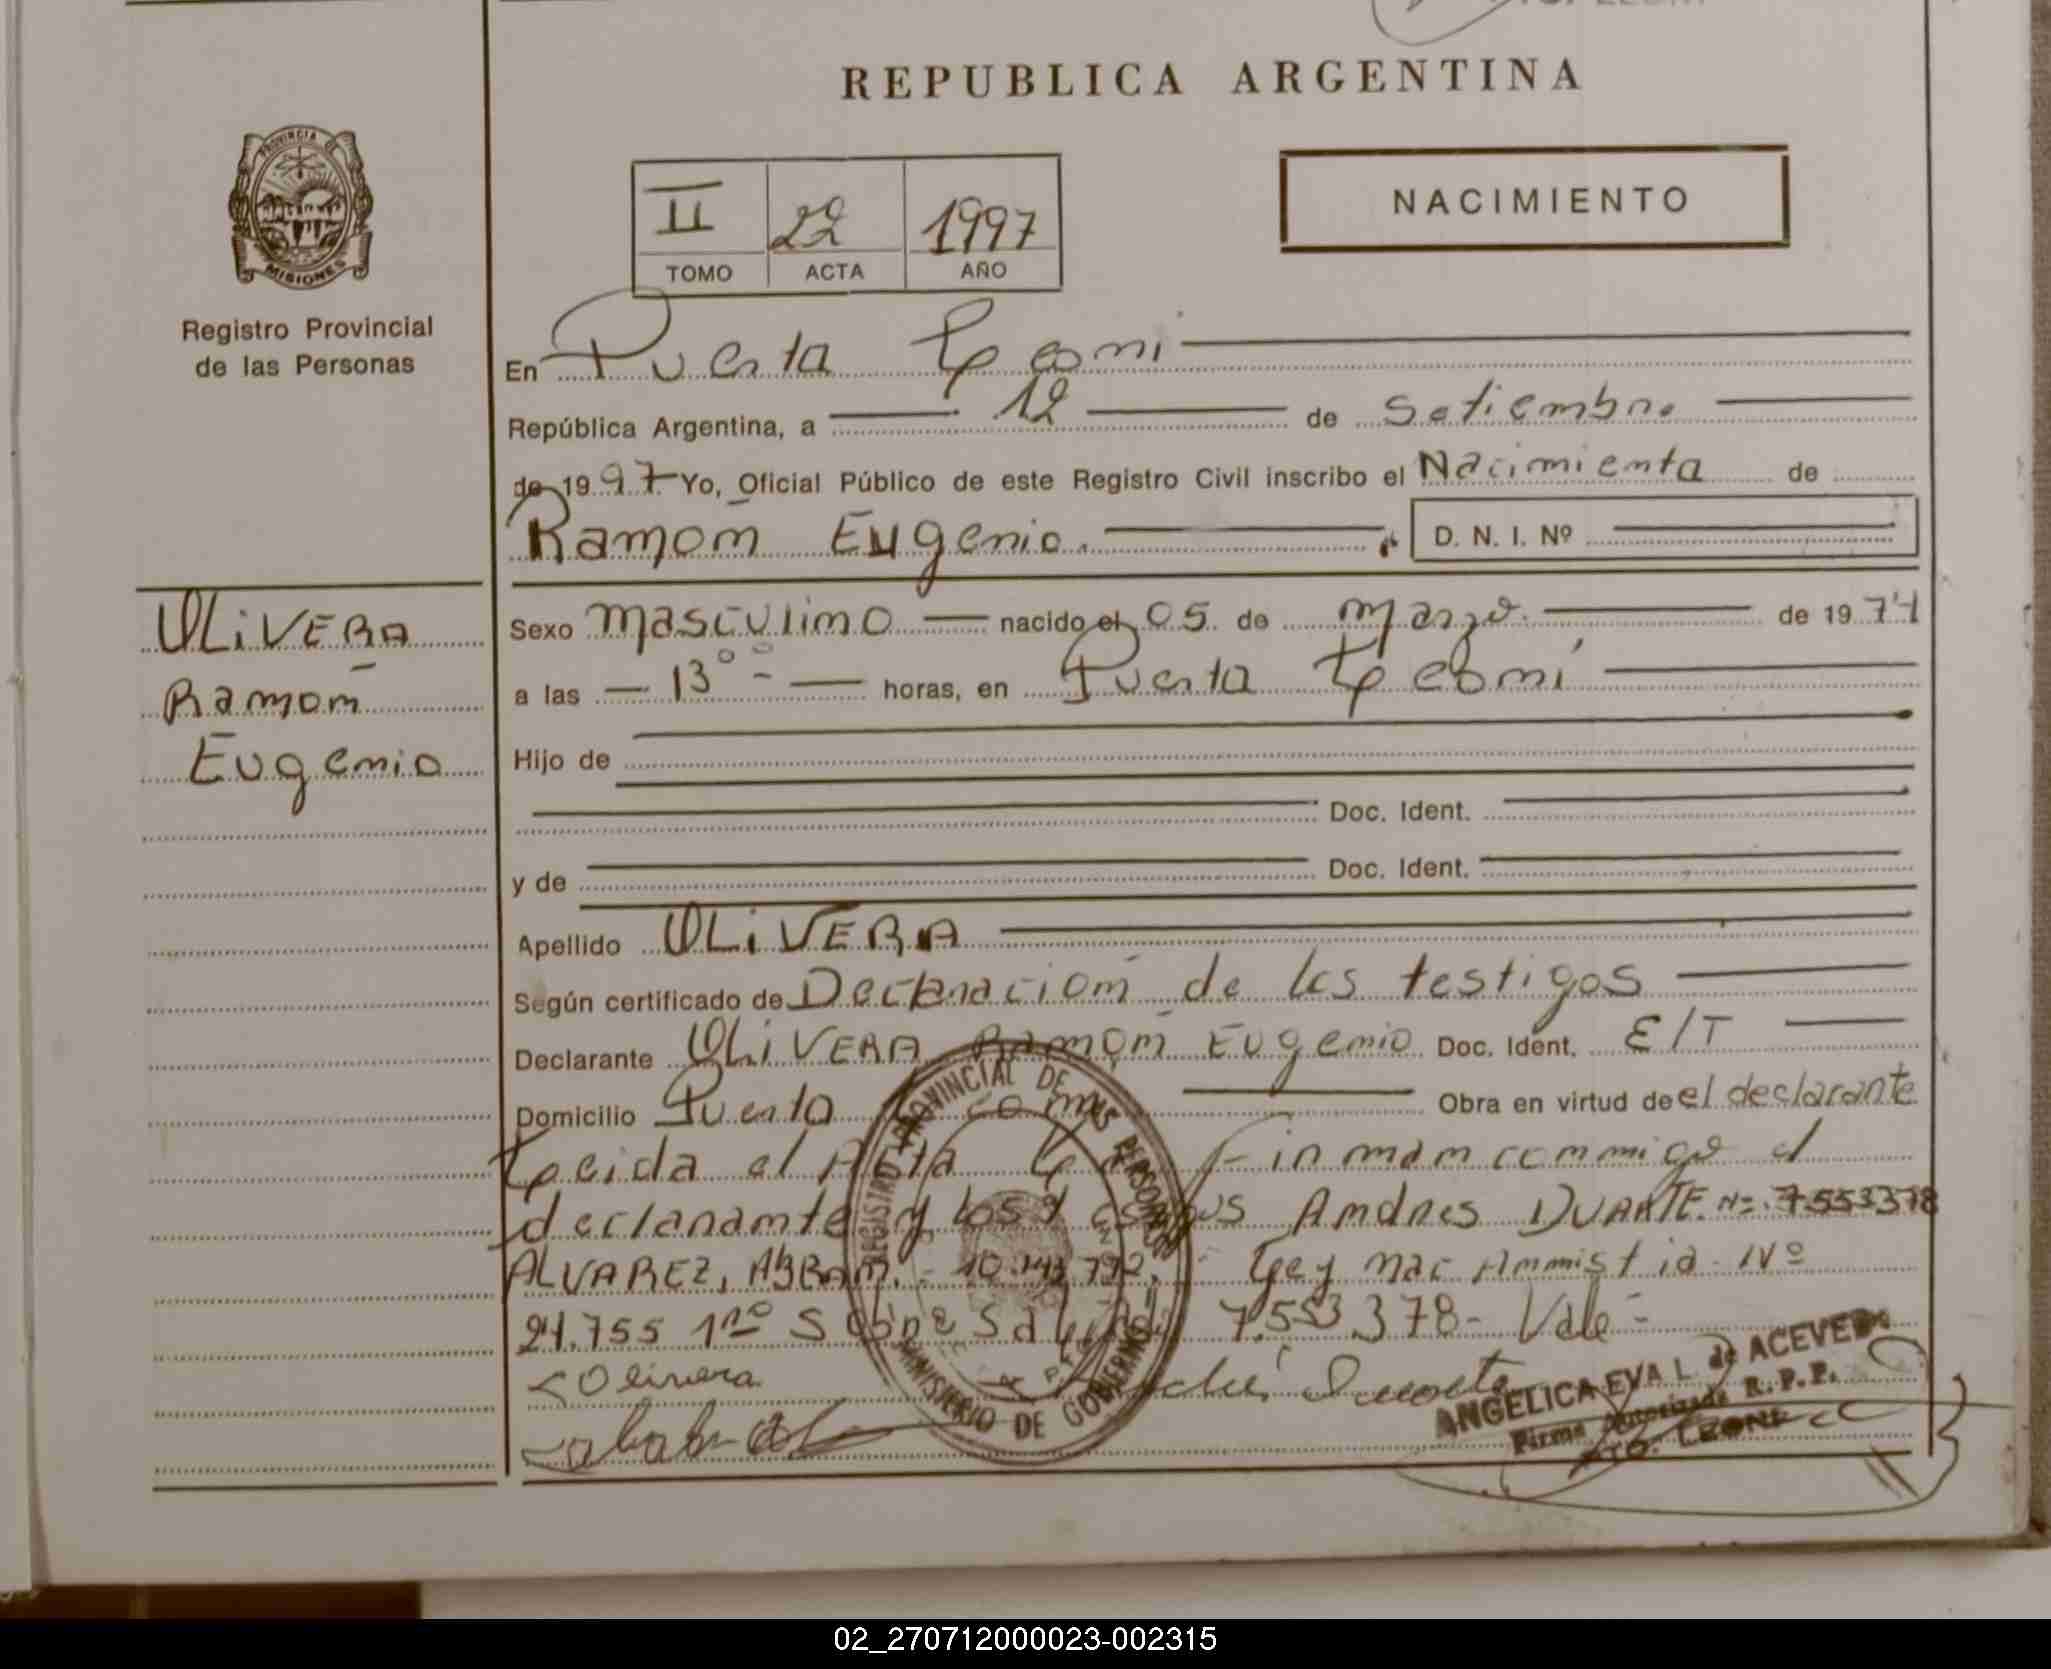 REPUBLICA ARGENTINA
PROVINCIA DE
MISIONES
Registro Provincial
de las Personas
II 22 1997
TOMO ACTA AÑO
NACIMIENTO
En Puerto Leoni
República Argentina, a 12 de Setiembre
de 1997 Yo, Oficial Público de este Registro Civil inscribo el Nacimiento de
Ramón Eugenio. D. N. I. Nº
OLIVERA
Ramón
Eugenio
Sexo masculino nacido el 05 de marzo de 1974
a las 13°° horas, en Puerto Leoni
Hijo de
Doc. Ident.
y de Doc. Ident.
Apellido OLIVERA
Según certificado de Declaración de los testigos
Declarante OLIVERA Ramón Eugenio Doc. Ident. E/T
Domicilio Puerto Obra en virtud de el declarante
Leida el Acta la firman conmigo el
declarante y los testigos Andres DUARTE. Nº 7553378
ALVAREZ, Ley nac Amnistia Nº
755 1ro Sobre 7.553.378- Vale-
Olivera
REGISTRO PROVINCIAL DE LAS PERSONAS
MINISTERIO DE GOBIERNO
ANGELICA EVA L. de ACEVEDO
Firma Autorizada R.P.P.
PTO. LEONI
02_270712000023-002315